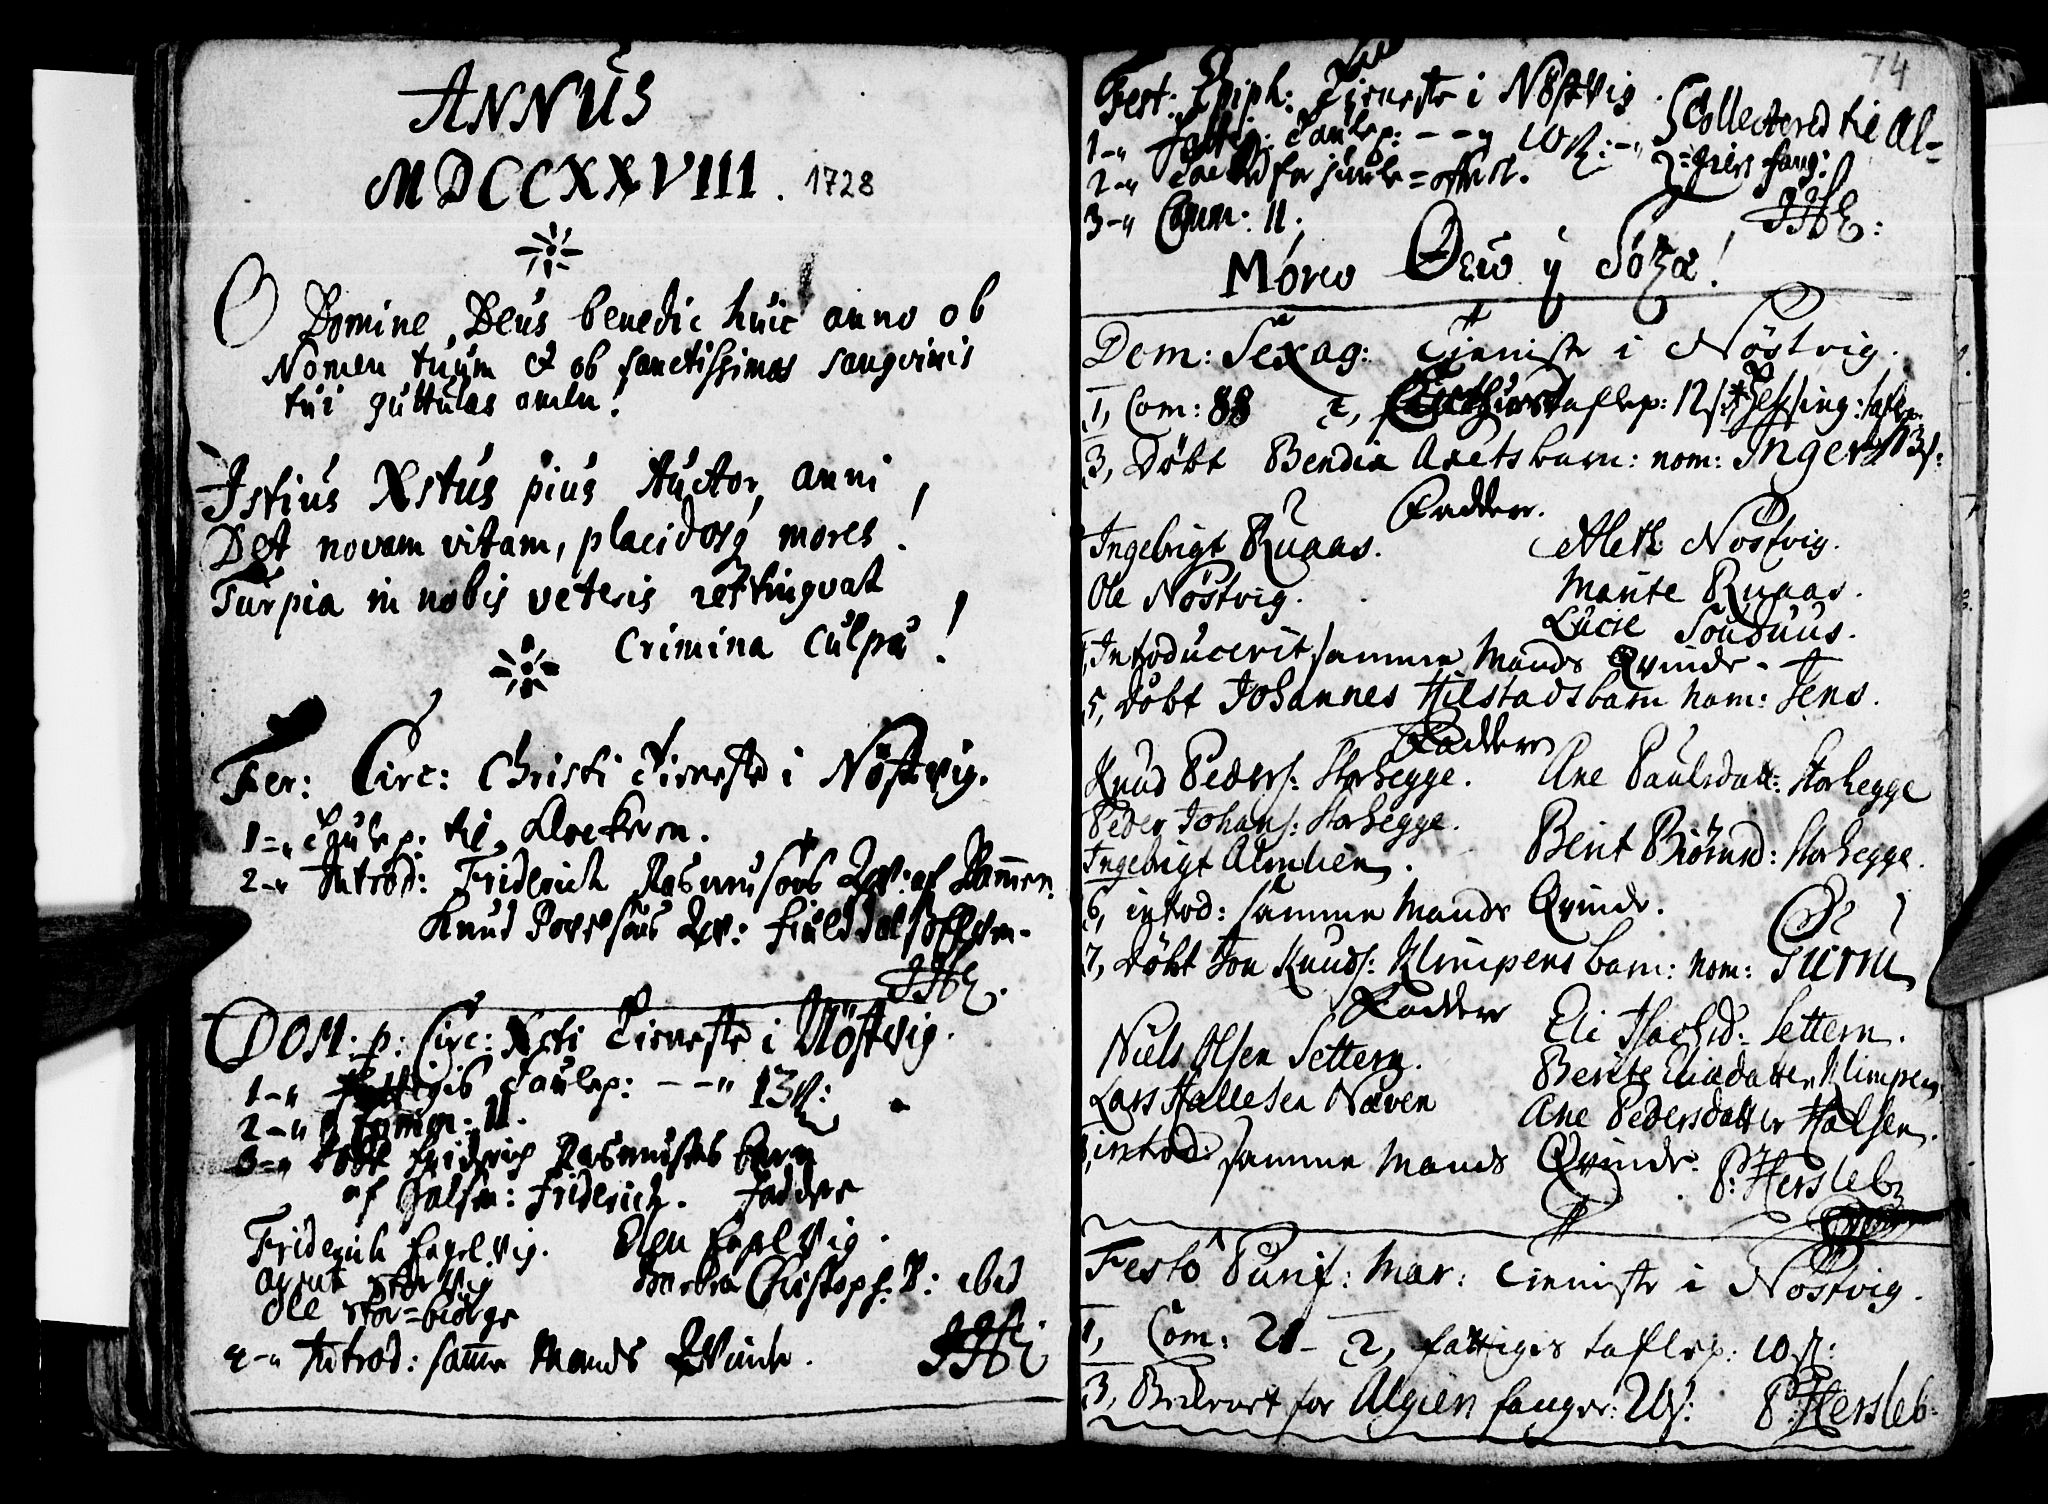 ANNUS
MDCCXXVIII. 1728
O Domine, Deus benedic huic anno ob
Nomen tuum & ob sanctissimas sangvinis
tui guttulas amen!
Istius Xstus pius Auctor, anni,
Det novam vitam, placidosq mores!
Turpia in nobis veteris restingvat
Crimina culpæ!
Fer: Circ: Christi Tieneste i Nöstvig.
1-" Taulep: til Degnen.
2-" Introd: Friderich Rasmusøns Qv: af
Knud Qv:
JHE.
DOM. p: Circ: Xsti Tieneste i Nöstvig.
1-" Fattigis Taulep: - - " 13 ß:
2-" Comm: 11.
3-" Døbt Fridrich Rasmusens barn
af Halsen: Friderich. Fadder
Friderich Engelvig. Elen Engelvig.
Storvig Christoph: D: ibid
Ole Stor=
4-" Introd: samme Mands Qvinde. JHE
74
Fest: Epiph: Tieneste i Nöstvig.
1-" Fattig: Taulep: - - " 10 ß:-" Collectered til Al=
2-" for juule=offeret. giers fang:
3-" Comm: 11. JHE:
Μόνῳ Θεῷ ἡ δόξα!
Dom: Sexag: Tieniste i Nöstvig.
1, Com: 88 2, taflep: 12 ß
3, Døbt Bendix Aretsbarn: nom: Inger
Fadder.
Ingebrigt Ruaas. Aleth Nöstvig.
Ole Nöstvig. Marite Ruaas.
Lucie
Introducerit samme Mands Qvinde.
5, Døbt Johannes Hilstadsbarn nom: Jens.
Fadder
Knud Peders: Storhegge. Ane Paulsdatt: Storhegge
Peder Johans: Storhegge. Berit Biörnsd: Storhegge.
Ingebrigt Almlien.
6, introd: samme Mands Qvinde.
7, Døbt Jon Knuds: Klimpens barn: nom:
Fadder
Niels Olsen Settern. Eli Settern.
Lars Hallesen Næven Berite Klimpen
Ane Pedersdatter Halsen.
introd: samme Mands Qvinde. P: Hersleb
Festo Purif: Mar: Tieniste i Nöstvig.
1, Com: 21 - 2, fattigis taflep: 10 ß:
3, for Algiers fanger: P: Hersleb.